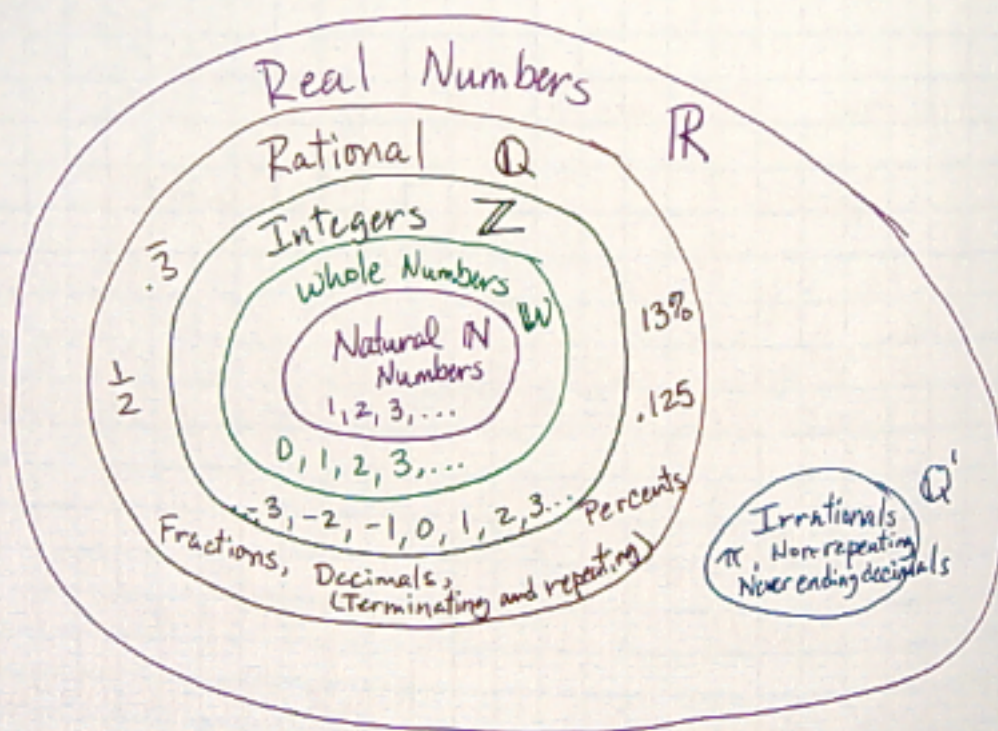 Real Numbers
ℝ
Rational ℚ
Integers ℤ
Whole Numbers
𝕎
Natural ℕ
Numbers
1, 2, 3, ...
0, 1, 2, 3, ...
...-3, -2, -1, 0, 1, 2, 3...
.3̅
1/2
13%
.125
Percents
Fractions, Decimals,
(Terminating and repeating)
ℚ'
Irrationals
π Non repeating
Never ending decimals